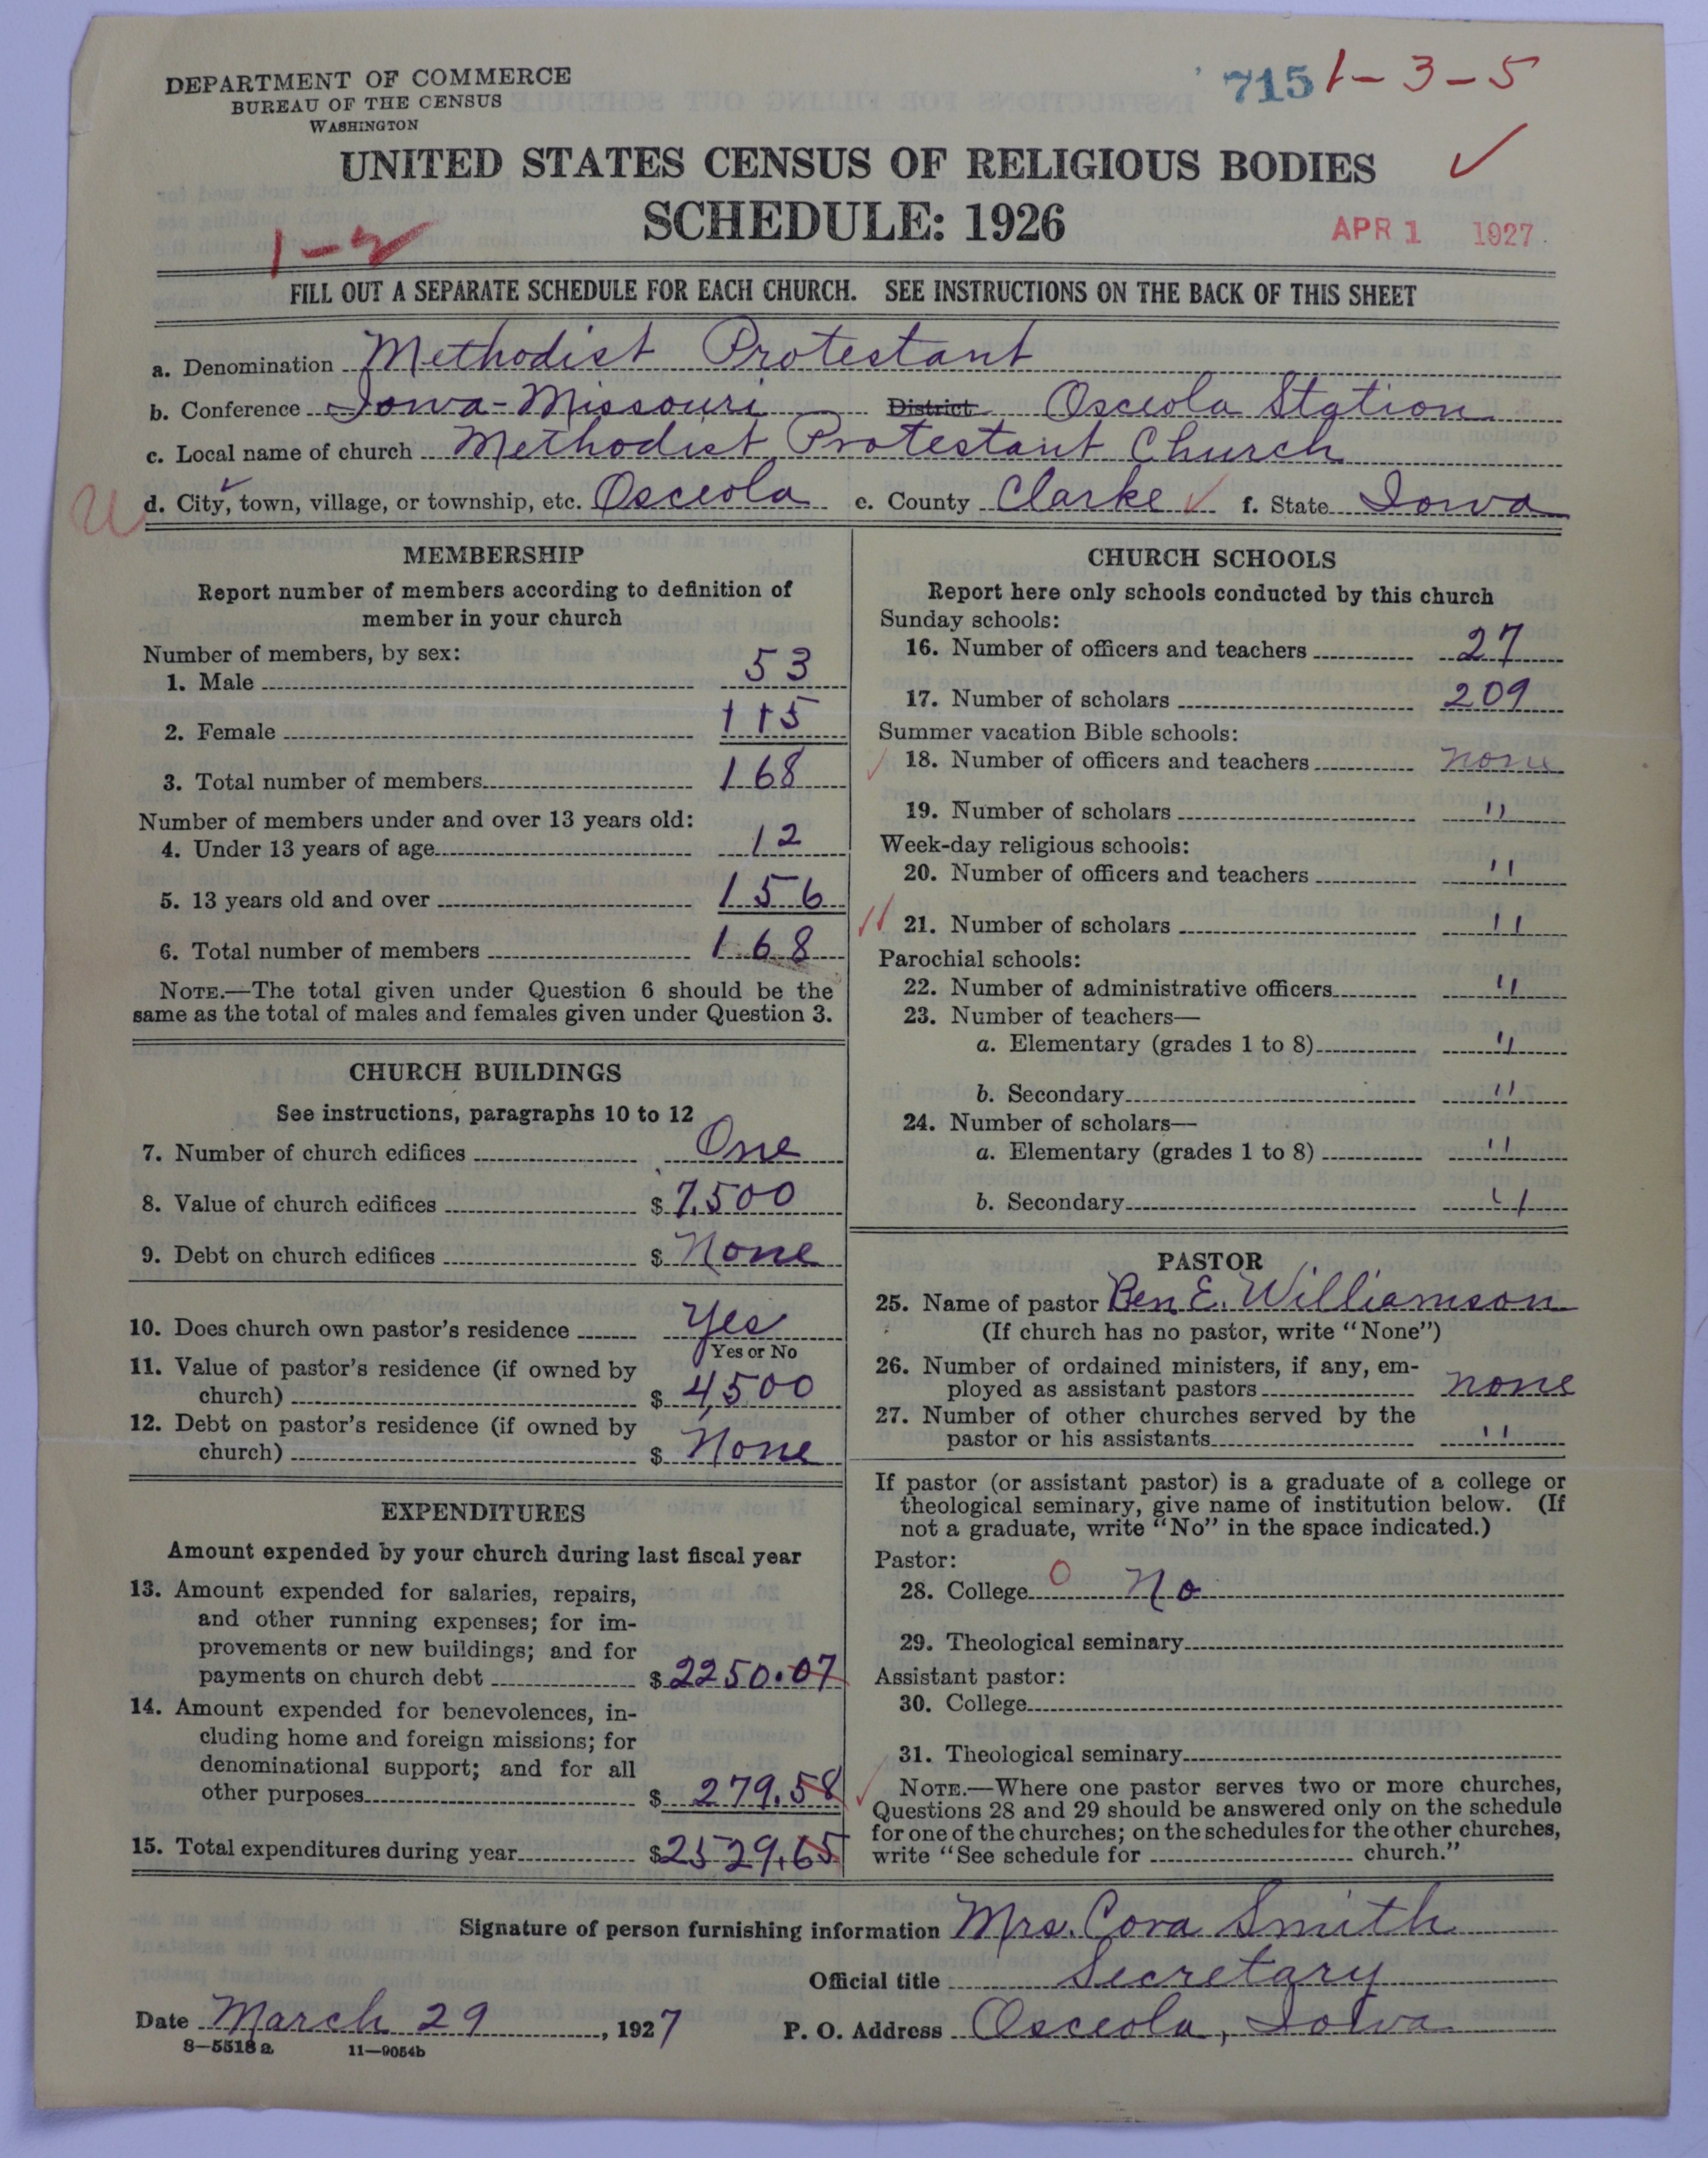 DEPARTMENT OF COMMERCE
BUREAU OF THE CENSUS
WASHINGTON
715 1-3-5
UNITED STATES CENSUS OF RELIGIOUS BODIES
SCHEDULE: 1926
1-2
APR 1 1927
FILL OUT A SEPARATE SCHEDULE FOR EACH CHURCH. SEE INSTRUCTIONS ON THE BACK OF THIS SHEET
a. Denomination Methodist Protestant
b. Conference Iowa-Missouri District Osceola Station
c. Local name of church Methodist Protestant Church
U d. City, town, village, or township, etc. Osceola e. County Clarke f. State Iowa
MEMBERSHIP
Report number of members according to definition of
member in your church
Number of members, by sex:
1. Male 53
2. Female 115
3. Total number of members 168
Number of members under and over 13 years old:
4. Under 13 years of age 12
5. 13 years old and over 156
6. Total number of members 168
NOTE.—The total given under Question 6 should be the
same as the total of males and females given under Question 3.
CHURCH BUILDINGS
See instructions, paragraphs 10 to 12
7. Number of church edifices One
8. Value of church edifices $ 7,500
9. Debt on church edifices $ None
10. Does church own pastor's residence Yes
Yes or No
11. Value of pastor's residence (if owned by
church) $ 4,500
12. Debt on pastor's residence (if owned by
church) $ None
EXPENDITURES
Amount expended by your church during last fiscal year
13. Amount expended for salaries, repairs,
and other running expenses; for im-
provements or new buildings; and for
payments on church debt $ 2250.07
14. Amount expended for benevolences, in-
cluding home and foreign missions; for
denominational support; and for all
other purposes $ 279.58
15. Total expenditures during year $ 2529.65
CHURCH SCHOOLS
Report here only schools conducted by this church
Sunday schools:
16. Number of officers and teachers 27
17. Number of scholars 209
Summer vacation Bible schools:
18. Number of officers and teachers none
19. Number of scholars "
Week-day religious schools:
20. Number of officers and teachers "
21. Number of scholars "
Parochial schools:
22. Number of administrative officers "
23. Number of teachers—
a. Elementary (grades 1 to 8) "
b. Secondary "
24. Number of scholars—
a. Elementary (grades 1 to 8) "
b. Secondary "
PASTOR
25. Name of pastor Ben E. Williamson
(If church has no pastor, write "None")
26. Number of ordained ministers, if any, em-
ployed as assistant pastors none
27. Number of other churches served by the
pastor or his assistants "
If pastor (or assistant pastor) is a graduate of a college or
theological seminary, give name of institution below. (If
not a graduate, write "No" in the space indicated.)
Pastor:
28. College 0 No
29. Theological seminary
Assistant pastor:
30. College
31. Theological seminary
NOTE.—Where one pastor serves two or more churches,
Questions 28 and 29 should be answered only on the schedule
for one of the churches; on the schedules for the other churches,
write "See schedule for church."
Signature of person furnishing information Mrs. Cora Smith
Official title Secretary
Date March 29, 1927 P. O. Address Osceola, Iowa
8-5518a 11-9054b